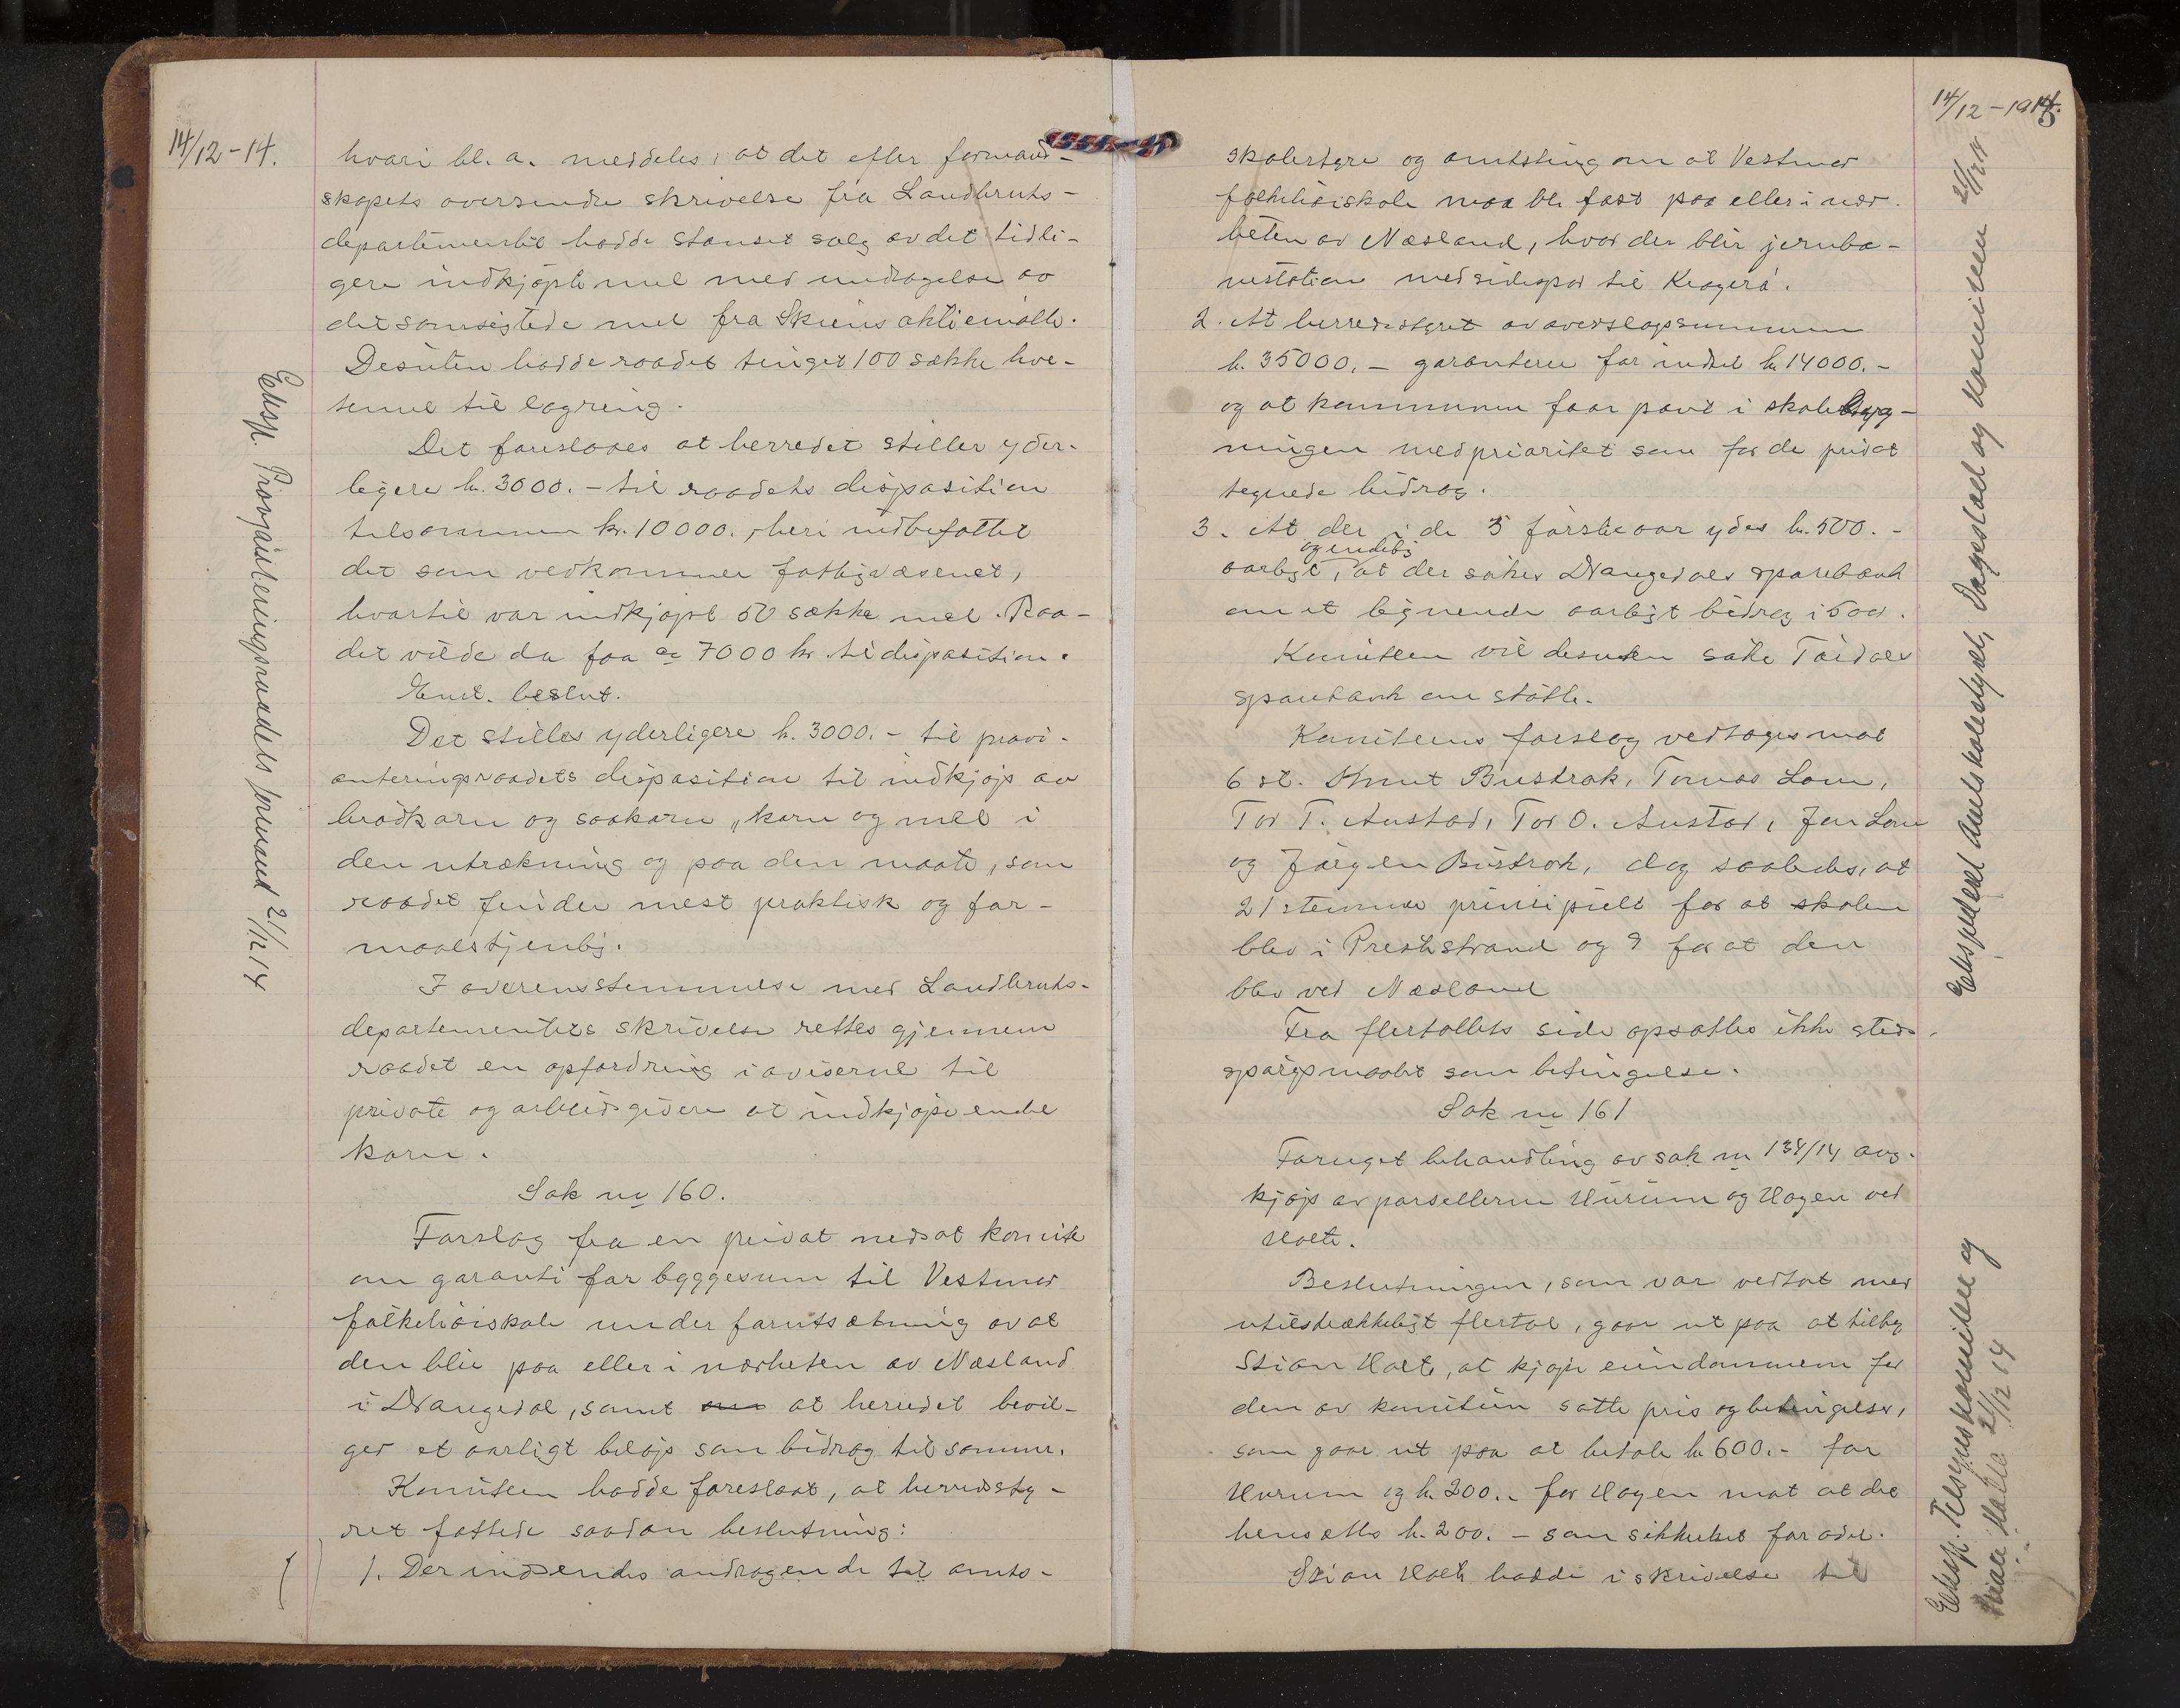 14/12-14.
hvori bl. a. meddeles, at det efter formand-
skapets oversendte skrivelse fra Landbruks-
departementet hadde stanset salg av det tidli-
gere indkjøpte mel med undtagelse av
det samsigtede mel fra Skiens aktiemølle.
Desuten hadde raadet tinget 100 sække hve-
temel til lagring.
Det foreslaaes at herredet stiller yder-
ligere kr. 3000.- til raadets disposition
tilsammen kr. 10000., heri indbefattet
det som vedkommer fattigvæsenet,
hvortil var indkjøpt 50 sække mel. Raa-
det vilde da faa ca 7000 kr. til disposition.
Enst. beslut.
Det stilles yderligere kr. 3000.- til provi-
anteringsraadets disposition til indkjøp av
brødkorn og saakorn, korn og mel i
den utrækning og paa den maate, som
raadet finder mest praktisk og for-
maalstjenlig.
I overensstemmelse med Landbruks-
departementets skrivelse rettes gjennem
raadet en opfordring i aviserne til
private og arbeidsgivere at indkjøpe endel
korn.
Sak nr 160.
Forslag fra en privat nedsat komite
om garanti for byggesum til Vestmar
folkehøiskole under forutsætning av at
den blir paa eller i nærheten av Næsland
i Drangedal, samt om at herredet bevil-
ger et aarligt beløp som bidrag til samme.
Komiteen hadde foreslaat, at herredssty-
ret fattede saadan beslutning:
1. Der indsendes andragende til amts-
Eksp. Provianteringsraadets formand 21/12 14
14/12-1914.
skolestyre og amtsting om at Vestmar
folkehøiskole maa bli fast paa eller i nær-
heten av Næsland, hvor der blir jernba-
nestation med sidespor til Kragerø.
2. At herredsstyret av overslagssummen
kr. 35000.- garanterer for indtil kr 14000.-
og at kommunen faar pant i skolebyg-
ningen med prioritet som for de privat
tegnede bidrag.
3. At der i de 5 første aar ydes kr. 500.-
og endelig
aarligt, at der søkes Drangedals sparebank
om et lignende aarligt bidrag i 5 aar.
Komiteen vil desuten søke Tørdals
sparebank om støtte.
Komiteens forslag vedtages mot
6 st. Knut Bustrak, Tomas Lom,
Tor T. Austad, Tor O. Austad, Jon Lom
og Jørgen Bustrak, dog saaledes, at
21 stemmer principielt for at skolen
blev i Prestestrand og 9 for at den
blev ved Næsland
Fra flertallets side opsattes ikke steds-
spørgsmaalet som betingelse.
Sak nr 161
Fornyet behandling av sak nr 138/14 ang.
kjøp av parsellerne Hurum og Hagen ved
Holte.
Beslutningen, som var vedtat med
utilstrækkeligt flertal, gaar ut paa at tilby
Stian Holte, at kjøpe eiendommene for
den av komiteen satte pris og betingelser,
som gaar ut paa at betale kr 600.- for
Hurum og kr. 200.- for Hagen mot at der
hensættes kr. 200.- som sikkerhet for odel.
Stian Holte hadde i skrivelse til
Ekspedert Amtsskolestyret, Dagsland og Komiteen 21/12 14
Eksp. Tilsynskomiteen og
Stian Holte 21/12 14